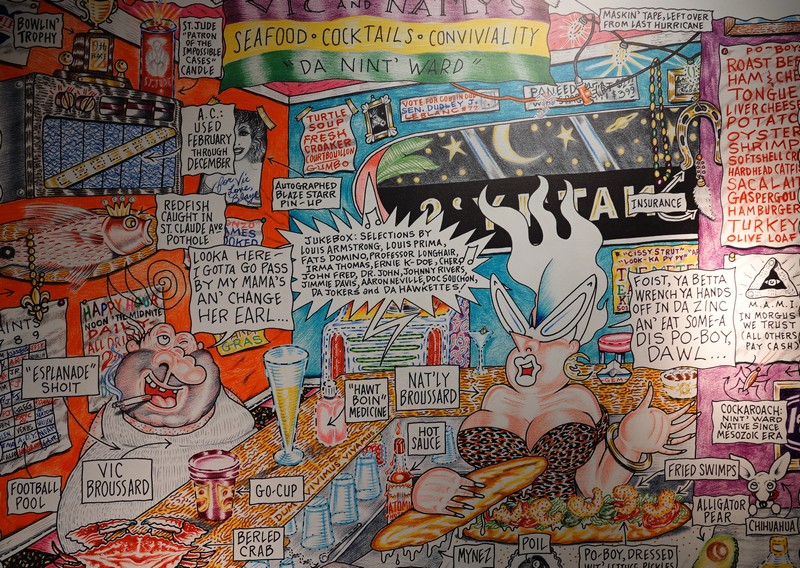 VIC AND NAT'LY'S
SEAFOOD • COCKTAILS • CONVIVIALITY
"DA NINT' WARD"
BOWLIN'
TROPHY
ST. JUDE
"PATRON
OF THE
IMPOSSIBLE
CASES"
CANDLE
MASKIN' TAPE, LEFT OVER
FROM LAST HURRICANE
A.C.:
USED
FEBRUARY
THROUGH
DECEMBER
For Vic
Love,
Blaze
AUTOGRAPHED
BLAZE STARR
PIN-UP
TURTLE
SOUP
FRESH
CROAKER
COURTBOUILLON
GUMBO
VOTE FOR COUSIN DUD
SEN. DUDLEY J.
LEBLANC
PANEED
PO-BOYS
ROAST BEE
HAM & CHE
TONGUE
LIVER CHEESE
POTATO
OYSTER
SHRIMP
SOFTSHELL CRA
HARDHEAD CATFI
SACALAIT
GASPERGOU
HAMBURGER
TURKEY
OLIVE LOAF
INSURANCE
REDFISH
CAUGHT IN
ST. CLAUDE AVE
POTHOLE
LOOKA HERE-
I GOTTA GO PASS
BY MY MAMA'S
AN' CHANGE
HER EARL...
JUKEBOX: SELECTIONS BY
LOUIS ARMSTRONG, LOUIS PRIMA,
FATS DOMINO, PROFESSOR LONGHAIR,
IRMA THOMAS, ERNIE K-DOE, CLARENCE
JOHN FRED, DR. JOHN, JOHNNY RIVERS,
JIMMIE DAVIS, AARON NEVILLE, DOC SOUCHON,
DA JOKERS and DA HAWKETTES
"CISSY STRUT",
LOOK-KA PY PY
FOIST, YA BETTA
WRENCH YA HANDS
OFF IN DA ZINC
AN' EAT SOME-A
DIS PO-BOY,
DAWL...
M.A.M.I.
IN MORGUS
WE TRUST
(ALL OTHERS
PAY CASH)
HAPPY HOUR
NOON 'TIL MIDNITE
GRAS
"ESPLANADE"
SHOIT
"HAWT
BOIN"
MEDICINE
NAT'LY
BROUSSARD
HOT
SAUCE
COCKAROACH:
NINT' WARD
NATIVE SINCE
MESOZOIK ERA
VIC
BROUSSARD
FOOTBALL
POOL
GO-CUP
DUM VIVIMUS VIVAMUS
FRIED SWIMPS
ALLIGATOR
PEAR
CHIHUAHUA
BERLED
CRAB
MYNEZ
POIL
PO-BOY, DRESSED
WIT' LETTUCE, PICKLES